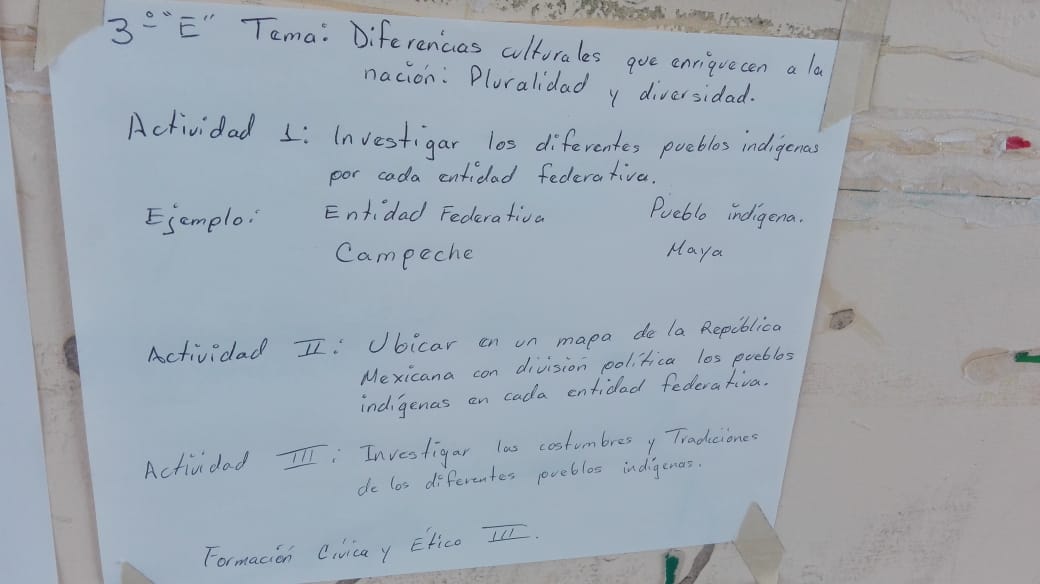 3º "E" Tema: Diferencias culturales que enriquecen a la
nación: Pluralidad y diversidad.
Actividad 1: Investigar los diferentes pueblos indígenas
por cada entidad federativa.
Ejemplo: Entidad Federativa Pueblo indígena.
Campeche Maya
Actividad II: Ubicar en un mapa de la República
Mexicana con división política los pueblos
indígenas en cada entidad federativa.
Actividad III: Investigar las costumbres y Tradiciones
de los diferentes pueblos indígenas.
Formación Cívica y Ética III.